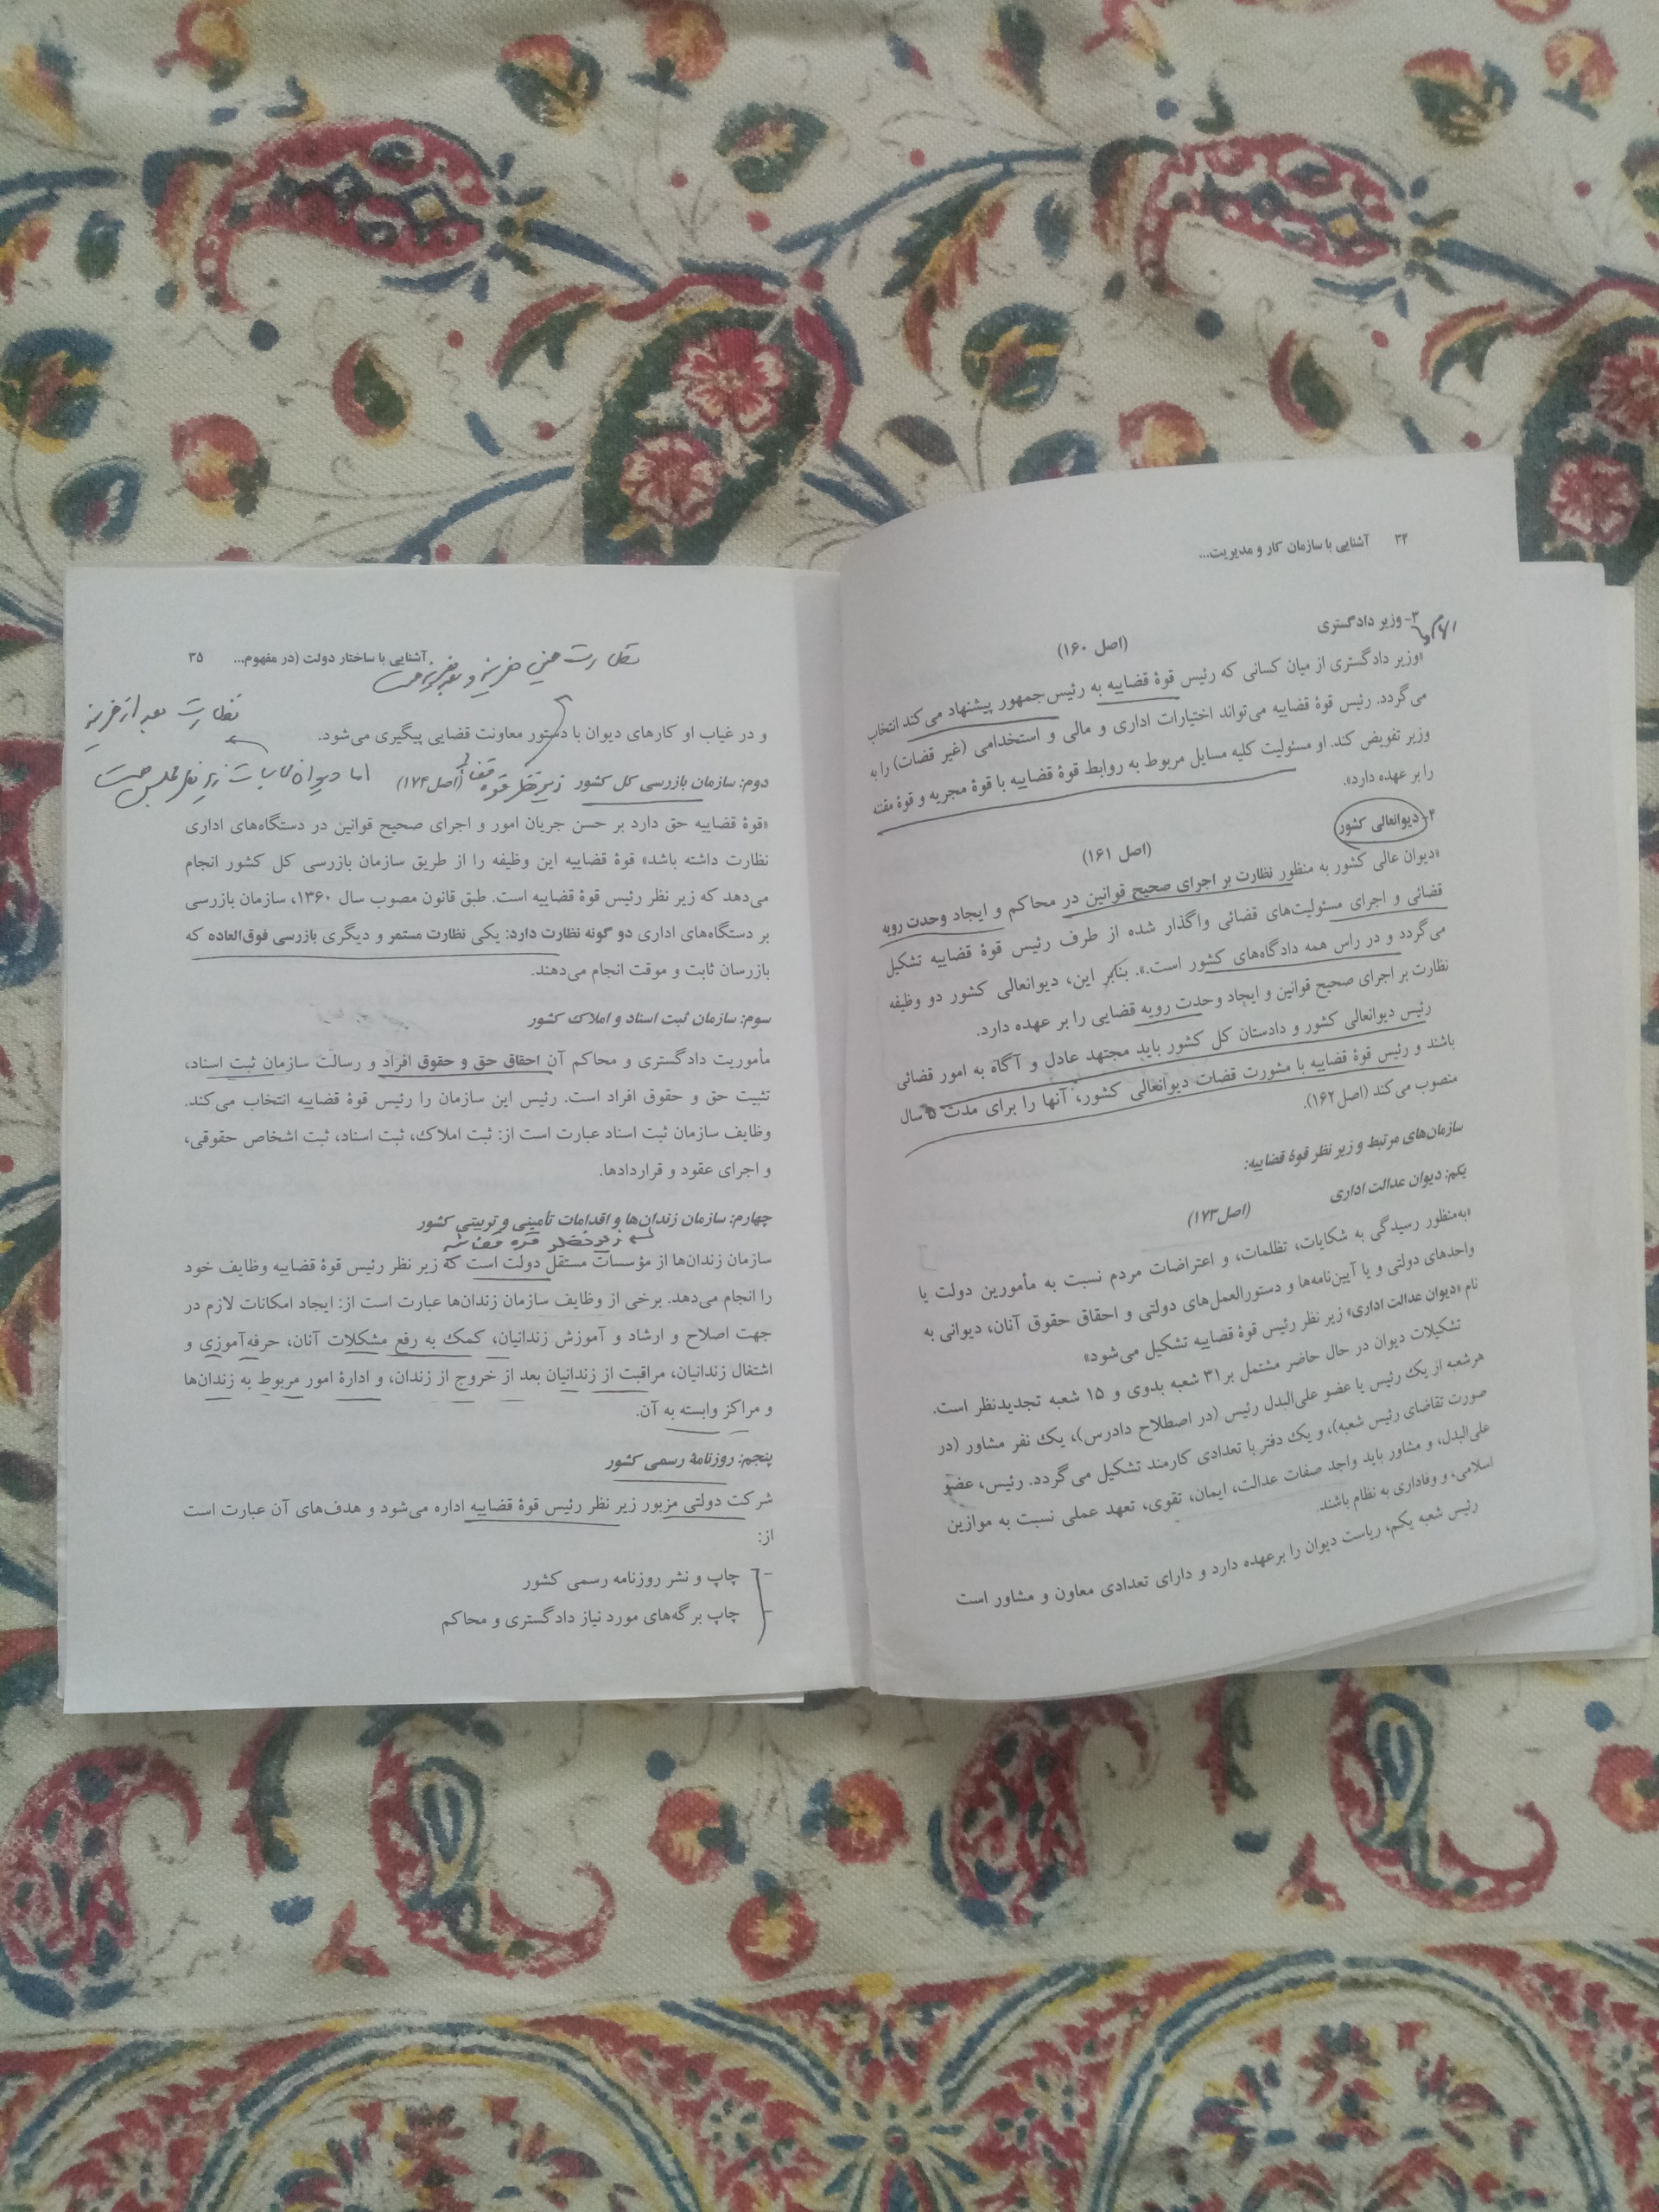 ۳۴ آشنایی با سازمان کار و مدیریت...
۳- وزیر دادگستری
(اصل ۱۶۰)
«وزیر دادگستری از میان کسانی که رئیس قوهٔ قضاییه به رئیس جمهور پیشنهاد می‌کند انتخاب
می‌گردد. رئیس قوهٔ قضاییه می‌تواند اختیارات اداری و مالی و استخدامی (غیر قضات) را به
وزیر تفویض کند. او مسئولیت کلیه مسایل مربوط به روابط قوهٔ قضاییه با قوهٔ مجریه و قوهٔ
را بر عهده دارد».
۴- دیوانعالی کشور
(اصل ۱۶۱)
«دیوان عالی کشور به منظور نظارت بر اجرای صحیح قوانین در محاکم و ایجاد وحدت رویه
قضائی و اجرای مسئولیت‌های قضائی واگذار شده از طرف رئیس قوهٔ قضاییه تشکیل
می‌گردد و در راس همه دادگاه‌های کشور است.». بنابر این، دیوانعالی کشور دو وظیفه
نظارت بر اجرای صحیح قوانین و ایجاد وحدت رویه قضایی را بر عهده دارد.
رئیس دیوانعالی کشور و دادستان کل کشور باید مجتهد عادل و آگاه به امور قضائی
باشند و رئیس قوهٔ قضاییه با مشورت قضات دیوانعالی کشور، آنها را برای مدت ۵ سال
منصوب می‌کند (اصل۱۶۲).
سازمان‌های مرتبط و زیر نظر قوهٔ قضاییه:
یکم: دیوان عدالت اداری
(اصل۱۷۳)
«به‌منظور رسیدگی به شکایات، تظلمات، و اعتراضات مردم نسبت به مأمورین دولت یا
واحدهای دولتی و یا آیین‌نامه‌ها و دستورالعمل‌های دولتی و احقاق حقوق آنان، دیوانی به
نام «دیوان عدالت اداری» زیر نظر رئیس قوهٔ قضاییه تشکیل می‌شود»
تشکیلات دیوان در حال حاضر مشتمل بر۳۱ شعبه بدوی و ۱۵ شعبه تجدیدنظر است.
هرشعبه از یک رئیس یا عضو علی‌البدل رئیس (در اصطلاح دادرس)، یک نفر مشاور (در
صورت تقاضای رئیس شعبه)، و یک دفتر با تعدادی کارمند تشکیل می‌گردد. رئیس، عضو
علی‌البدل، و مشاور باید واجد صفات عدالت، ایمان، تقوی، تعهد عملی نسبت به موازین
اسلامی، و وفاداری به نظام باشند.
رئیس شعبه یکم، ریاست دیوان را برعهده دارد و دارای تعدادی معاون و مشاور است
آشنایی با ساختار دولت (در مفهوم... ۳۵
نظارت حین خرج و بعد
نظارت بعد از خرج
و در غیاب او کارهای دیوان با دستور معاونت قضایی پیگیری می‌شود.
دوم: سازمان بازرسی کل کشور زیر نظر قوه قضا (اصل۱۷۴) اما دیوان محاسبات زیر نظر مجلس است
«قوهٔ قضاییه حق دارد بر حسن جریان امور و اجرای صحیح قوانین در دستگاه‌های اداری
نظارت داشته باشد» قوهٔ قضاییه این وظیفه را از طریق سازمان بازرسی کل کشور انجام
می‌دهد که زیر نظر رئیس قوهٔ قضاییه است. طبق قانون مصوب سال ۱۳۶۰، سازمان بازرسی
بر دستگاه‌های اداری دو گونه نظارت دارد: یکی نظارت مستمر و دیگری بازرسی فوق‌العاده که
بازرسان ثابت و موقت انجام می‌دهند.
سوم: سازمان ثبت اسناد و املاک کشور
مأموریت دادگستری و محاکم آن احقاق حق و حقوق افراد و رسالت سازمان ثبت اسناد،
تثبیت حق و حقوق افراد است. رئیس این سازمان را رئیس قوهٔ قضاییه انتخاب می‌کند.
وظایف سازمان ثبت اسناد عبارت است از: ثبت املاک، ثبت اسناد، ثبت اشخاص حقوقی،
و اجرای عقود و قراردادها.
چهارم: سازمان زندان‌ها و اقدامات تأمینی و تربیتی کشور
زیر نظر قوه قضائیه
سازمان زندان‌ها از مؤسسات مستقل دولت است که زیر نظر رئیس قوهٔ قضاییه وظایف خود
را انجام می‌دهد. برخی از وظایف سازمان زندان‌ها عبارت است از: ایجاد امکانات لازم در
جهت اصلاح و ارشاد و آموزش زندانیان، کمک به رفع مشکلات آنان، حرفه‌آموزی و
اشتغال زندانیان، مراقبت از زندانیان بعد از خروج از زندان، و ادارهٔ امور مربوط به زندان‌ها
و مراکز وابسته به آن.
پنجم: روزنامهٔ رسمی کشور
شرکت دولتی مزبور زیر نظر رئیس قوهٔ قضاییه اداره می‌شود و هدف‌های آن عبارت است
از:
- چاپ و نشر روزنامه رسمی کشور
- چاپ برگه‌های مورد نیاز دادگستری و محاکم